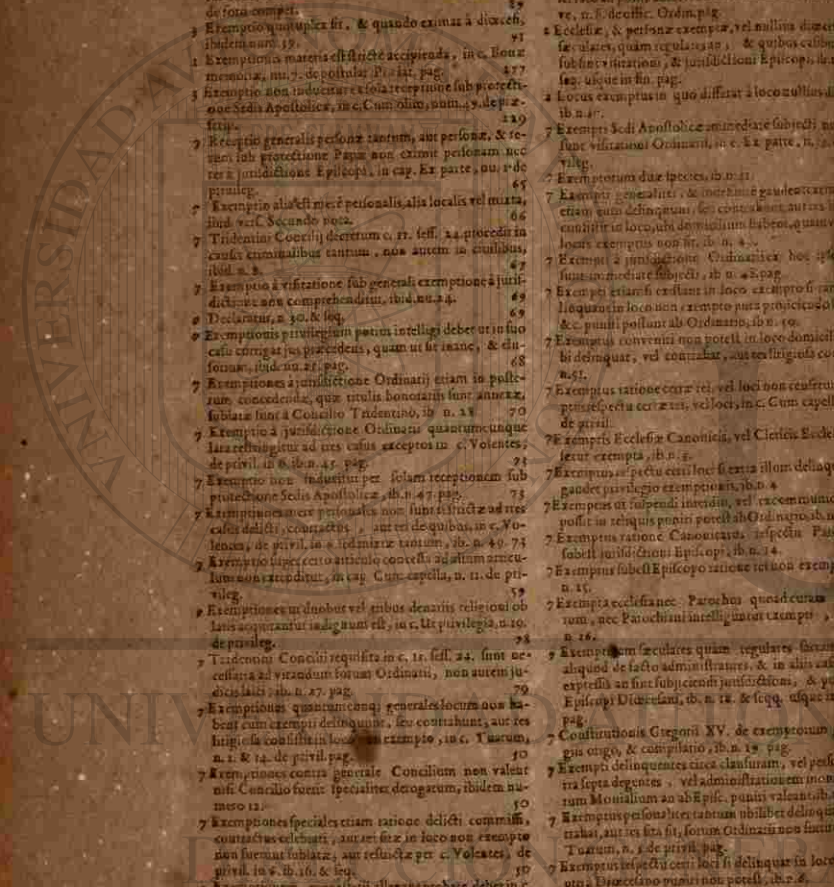 de foro compet. 89
3 Exemptio quintuplex sit, & quando eximat à diœcesi,
ibidem num. 39. 91
1 Exemptionis materia est strictè accipienda, in c. Bonæ
memoriæ, nu. 7. de postulat. Prælat. pag. 177
3 Exemptio non inducitur ex sola receptione sub protecti-
one Sedis Apostolicæ, in c. Cum olim, num. 49. de præ-
script. 229
7 Receptio generalis personæ tantum, aut personæ, & re-
rum sub protectione Papæ non eximit personam nec
res à jurisdictione Episcopi, in cap. Ex parte, nu. 1. de
privileg. 65
7 Exemptio alia est merè personalis, alia localis vel mixta,
ibid. vers. Secundo nota. 66
7 Tridentini Concilij decretum c. 11. sess. 24. procedit in
causis criminalibus tantum, non autem in civilibus,
ibid. n. 8. 67
7 Exemptio à visitatione sub generali exemptione à juris-
dictione non comprehenditur, ibid. nu. 24. 69
Declaratur, n. 30. & seq. 69
Exemptionis privilegium potius intelligi debet ut in suo
casu corrigat jus præcedens, quam ut sit inane, & elu-
sorium, ibid. nu. 25. pag. 68
7 Exemptiones à jurisdictione Ordinarij etiam in poste-
rum concedendæ, quæ titulis honorariis sunt annexæ,
sublatæ sunt à Concilio Tridentino, ib. n. 28 70
7 Exemptio à jurisdictione Ordinarii quantumcunque
lata restringitur ad tres casus exceptos in c. Volentes,
de privil. in 6. ib. n. 45. pag. 73
7 Exemptio non inducitur per solam receptionem sub
protectione Sedis Apostolicæ, ib. n. 47. pag. 73
7 Exemptiones merè personales non sunt restrictæ ad tres
casus delicti, contractus, aut rei de quibus, in c. Vo-
lentes, de privil. in 6. sed mixtæ tantum, ib. n. 49. 73
7 Exemptio super certo articulo concessa ad alium articu-
lum non extenditur, in cap. Cum capella, n. 11. de pri-
vileg. 59
Exemptiones ut duobus vel tribus denariis religioni ob
latis acquirantur indignum est, in c. Ut privilegia, n. 10.
de privileg. 98
7 Tridentini Concilii requisita in c. 11. sess. 24. sunt ne-
cessaria ad vitandum forum Ordinarii, non autem ju-
dicis laici, ib. n. 27. pag. 79
7 Exemptiones quantumcunq; generales locum non ha-
bent cum exempti delinquunt, seu contrahunt, aut res
litigiosa consistit in loco non exempto, in c. Tuarum,
n. 1. & 14. de privil. pag. 50
7 Exemptiones contra generale Concilium non valent
nisi Concilio fuerit specialiter derogatum, ibidem nu-
mero 12. 50
7 Exemptiones speciales etiam ratione delicti commissi,
contractus celebrati, aut rei sitæ in loco non exempto
non fuerunt sublatæ, aut restrictæ per c. Volentes, de
privil. in 6. ib. 16. & seq. 50
ve, n. 8. de offic. Ordin. pag.
2 Ecclesiæ, & personæ exemptæ, vel nullius diœcesi
sæculares, quàm regulares an, & quibus casibus
subsint visitationi, & jurisdictioni Episcopi, ib. n.
seq. usque in fin. pag.
2 Locus exemptus in quo differat à loco nullius di
ib. n.
7 Exempti Sedi Apostolicæ immediatè subjecti no
sunt visitationi Ordinarii, in c. Ex parte, n.
vileg.
7 Exemptorum duæ species, ib. n. 21.
7 Exempti generaliter, & indefinitè gaudent exem
etiam cum delinquunt, seu contrahunt, aut res
consistit in loco, ubi domicilium habent, quamvis
locus exemptus non sit, ib. n. 4
7 Exempti à jurisdictione Ordinarii ex hoc ipso
sunt immediatè subjecti, ib. n. 48. pag.
7 Exempti etiamsi existant in loco exempto si tam
linquant in loco non exempto puta projiciendo
& c. puniri possunt ab Ordinario, ib. n. 50.
7 Exemptus conveniri non potest in loco domicilii
bi delinquat, vel contrahat, aut res litigiosa con
n. 51.
7 Exemptus ratione certæ rei, vel loci non censetur
ptus respectu certæ rei, vel loci, in c. Cum capella
de privil.
7 Exemptis Ecclesiæ Canonicis, vel Clericis Eccle
setur exempta, ib. n. 5.
7 Exemptus respectu certi loci si extra illum delinqu
gaudet privilegio exemptionis, ib. n. 4
7 Exemptus ut suspendi interdici, vel excommunic
possit in reliquis puniri potest ab Ordinario, ib. n
7 Exemptus ratione Canonicatus, respectu Par
subest jurisdictioni Episcopi, ib. n. 14.
7 Exemptus subest Episcopo ratione rei non exemp
n. 15.
7 Exempta ecclesia nec Parochus quoad curam
rum, nec Parochiani intelliguntur exempti,
n. 16.
7 Exemptorum sæculares quàm regulares
aliquod de facto administrantes, & in aliis cas
expressis an sint subjiciendi jurisdictioni, &
Episcopi Diœcesani, ib. n. 18. & seqq. usque
pag.
7 Constitutionis Gregorii XV. de exemptorum
giis origo, & compilatio, ib. n. 19. pag.
7 Exempti delinquentes circa clausuram, vel perso
tra septa degentes, vel administrationem
rum Monialium an ab Episc. puniri valeant, ib.
7 Exemptus personaliter tantum ubilibet delinqu
trahat, aut res sita sit, forum Ordinarii non
Tuarum, n. 1. de privil. pag.
7 Exemptus respectu certi loci si delinquat in loco
ptus Diœcesano puniri non potest, ib. n. 6.
UNIVERSIDAD AUTÓNOMA